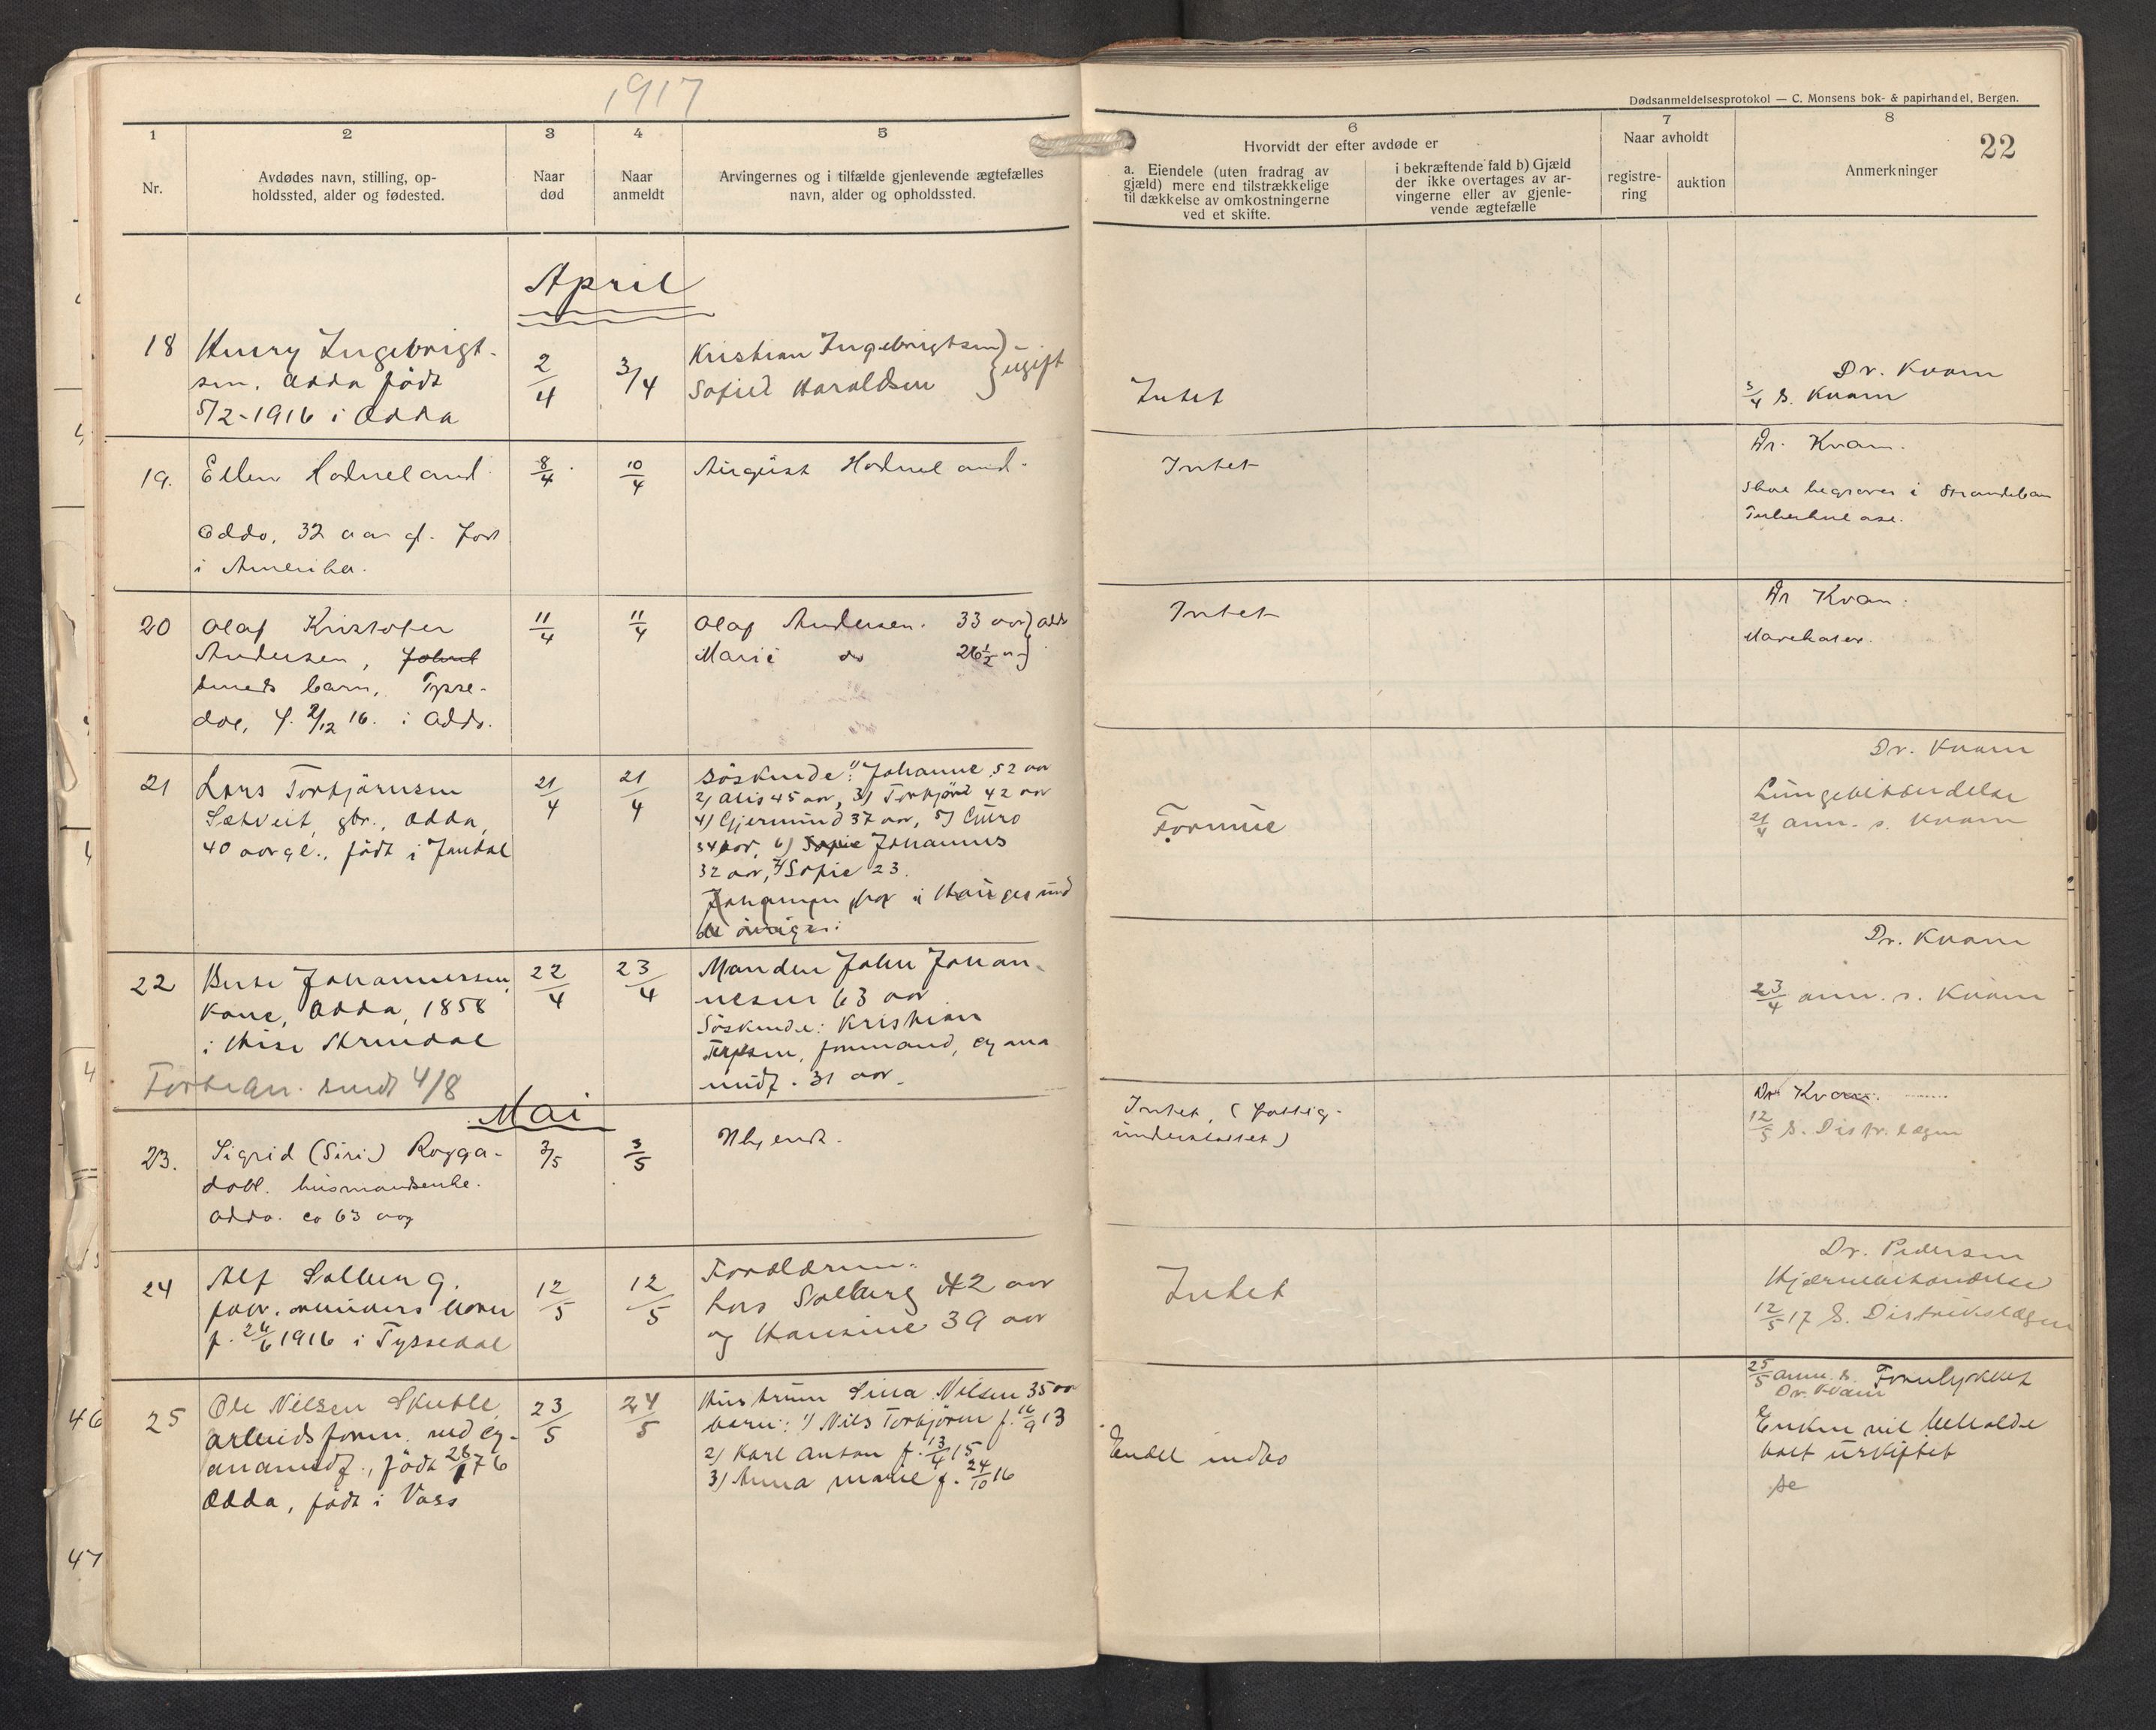 1917
Dødsanmeldelsesprotokol — C. Monsens bok- & papirhandel, Bergen.
22
1 2 3 4 5 6 7 8
Nr.
Avdødes navn, stilling, op-
holdssted, alder og fødested.
Naar
død
Naar
anmeldt
Arvingernes og i tilfælde gjenlevende ægtefælles
navn, alder og opholdssted.
Hvorvidt der efter avdøde er
a. Eiendele (uten fradrag av
gjæld) mere end tilstrækkelige
til dækkelse av omkostningerne
ved et skifte.
i bekræftende fald b) Gjæld
der ikke overtages av ar-
vingerne eller av gjenle-
vende ægtefælle
Naar avholdt
registre-
ring
auktion
Anmerkninger
April
18
Henry Ingebrigt-
sen, Odda født
5/2-1916 i Odda
2/4
3/4
Kristian Ingebrigtsen
Sofie Haraldsen } ugift
Intet
Dr. Kvam
3/4 s. Kvam
19.
Ellen Hodneland
Odda, 32 aar gl. født
i Amerika.
8/4
10/4
August Hodneland.
Intet
Dr. Kvam.
Skal begraves i Strandebarm
Tuberkulose.
20
Olaf Kristofer
Andersen,
smeds barn, Tysse-
dal, f. 2/12 16. i Odda.
11/4
11/4
Olaf Andersen. 33 aar } Odda
Marie do 26 1/2 "
Intet
Dr Kvam.
21
Lars Torbjørnsen
Sætveit, gbr., Odda,
40 aar gl., født i Jondal
21/4
21/4
Søskende: 1) Johanne 52 aar
2) Olis 45 aar, 3) Torbjørn 42 aar
4) Gjermund 37 aar, 5) Guro
34 aar, 6) Sofie Johannes
32 aar, 7) Sofie 23.
Johannes bor i Haugesund
de øvrige:
Formue
Dr. Kvam
Lungebetændelse
21/4 anm. s. Kvam
22
Berte Johannessen,
kone, Odda, 1858
i Skrudal
Forhan. sendt 4/8
22/4
23/4
Manden John Johan-
nesen 63 aar
Søskende: Kristian
Terjesen, formand, Cyana
midf. 31 aar.
Dr. Kvam
23/4 anm. s. Kvam
Mai
23.
Sigrid (Siri) Rogga-
dall. husmandsenke.
Odda. ca 63 aar
3/5
3/5
Ubekjendt.
Intet, (fattig-
understøttet)
Dr Kvam.
12/5 s. Distr. lægen
24
Alf Solberg.
barn
f. 26/6 1916 i Tyssedal
12/5
12/5
Forældrene:
Lars Solberg 42 aar
og Hansine 39 aar
Intet
Dr. Pedersen
Hjernebetændelse
12/5 17 s. Distriktslægen
25
Ole Nilsen Skutle
arbeidsform. ved Cy-
anamidf., født 28/1 76
Odda, født i Voss
23/5
24/5
Hustruen Sina Nilsen 35 aar
barn: 1) Nils Torbjørn f. 16/9 13
2) Karl Anton f. 13/4 15
3) Anna Marie f. 24/10 16
Endel indbo
25/5 anm. s. Forulykket
Dr. Kvam
Enken vil beholde
boet uskiftet
46
47